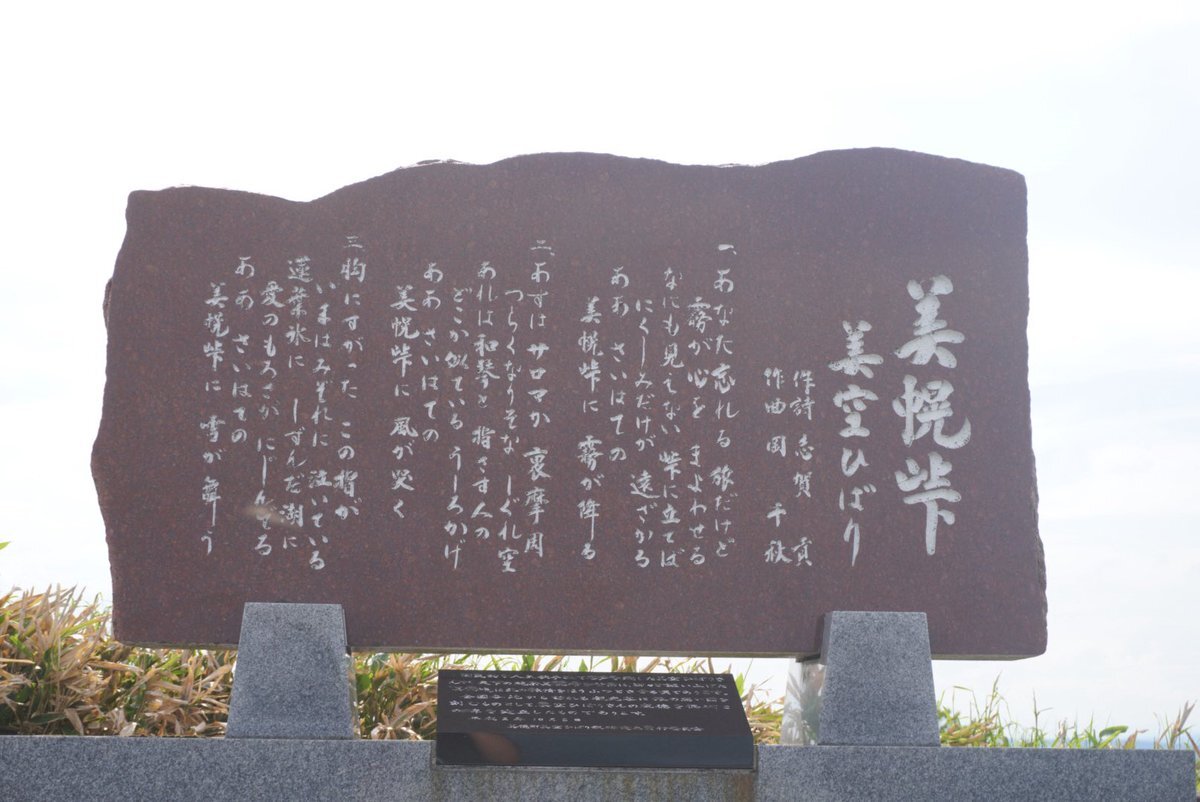 美幌峠
美空ひばり
作詩 志賀 貢
作曲 岡 千秋
一、あなた忘れる 旅だけど
霧が心を まよわせる
なにも見えない 峠に立てば
にくしみだけが 遠ざかる
ああ さいはての
美幌峠に 霧が降る
二、あすは サロマか 裏摩周
つらくなりそな しぐれ空
あれは和琴と 指さす人の
どこか似ている うしろかげ
ああ さいはての
美幌峠に 風が哭く
三、胸にすがった この指が
いまはみぞれに 泣いている
蓮葉氷に しずんだ湖に
愛のもろさが にじんでる
ああ さいはての
美幌峠に 雪が舞う